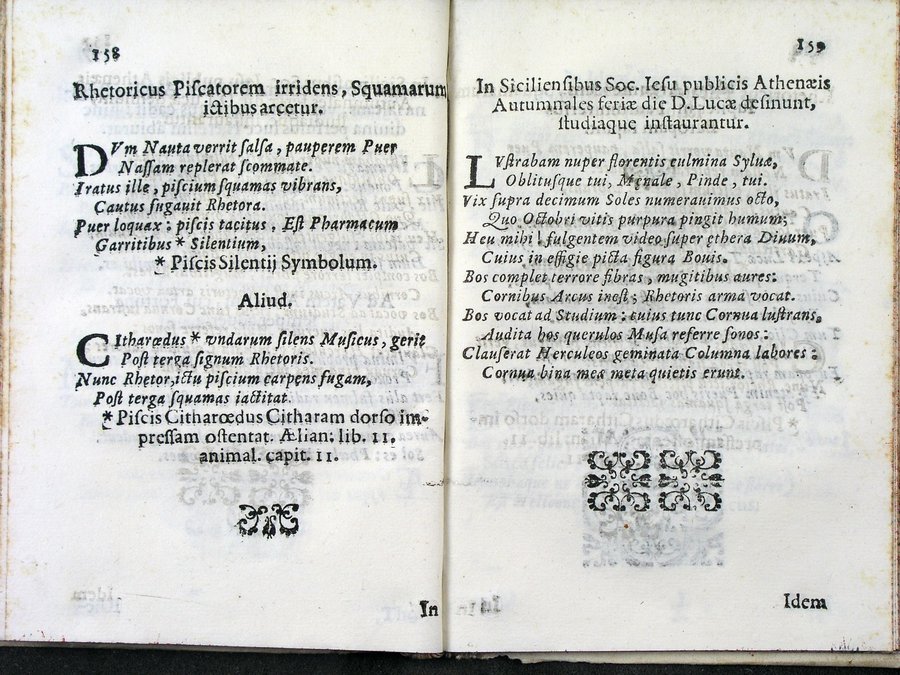 158
Rhetoricus Piſcatorem irridens, Squamarum
ictibus arcetur.
DVm Nauta verrit ſalſa, pauperem Puer
Naſſam replerat ſcommate.
Iratus ille, piſcium ſquamas vibrans,
Cautus fugauit Rhetora.
Puer loquax: piſcis tacitus. Eſt Pharmacum
Garritibus * Silentium,
* Piſcis Silentij Symbolum.
Aliud.
CItharœdus * vndarum ſilens Muſicus, gerit
Poſt terga ſignum Rhetoris.
Nunc Rhetor, ictu piſcium carpens fugam,
Poſt terga ſquamas iactitat.
* Piſcis Citharœdus Citharam dorſo im-
preſſam oſtentat. Ælian: lib. 11.
animal. capit. 11.
In
159
In Sicilienſibus Soc. Ieſu publicis Athenæis
Autumnales feriæ die D. Lucæ deſinunt,
ſtudiaque inſtaurantur.
LVſtrabam nuper florentis culmina Syluæ,
Oblituſque tui, Męnale, Pinde, tui.
Vix ſupra decimum Soles numerauimus octo,
Quo Octobri vitis purpura pingit humum;
Heu mihi! fulgentem video ſuper ęthera Diuum,
Cuius in effigie picta figura Bouis.
Bos complet terrore fibras, mugitibus aures:
Cornibus Arcus ineſt; Rhetoris arma vocat.
Bos vocat ad Studium: cuius tunc Cornua luſtrans,
Audita bos querulos Muſa referre ſonos:
Clauſerat Herculeos geminata Columna labores:
Cornua bina mea meta quietis erunt.
Idem